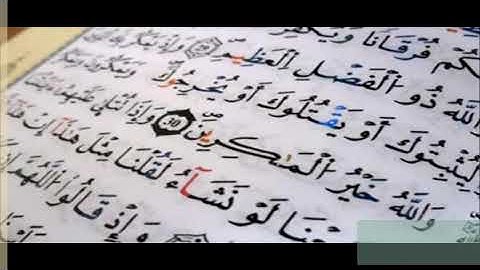 فُرْقَانًا وَيُكَفِّرْ
وَاللَّهُ ذُو الْفَضْلِ الْعَظِيمِ ﴿29﴾ وَإِذْ يَمْكُرُ
لِيُثْبِتُوكَ أَوْ يَقْتُلُوكَ أَوْ يُخْرِجُوكَ وَيَمْكُرُونَ وَيَمْكُرُ
وَاللَّهُ خَيْرُ الْمَٰكِرِينَ ﴿30﴾ وَإِذَا تُتْلَىٰ عَلَيْهِمْ
لَوْ نَشَآءُ لَقُلْنَا مِثْلَ هَٰذَآ إِنْ
وَإِذْ قَالُوا اللَّهُمَّ